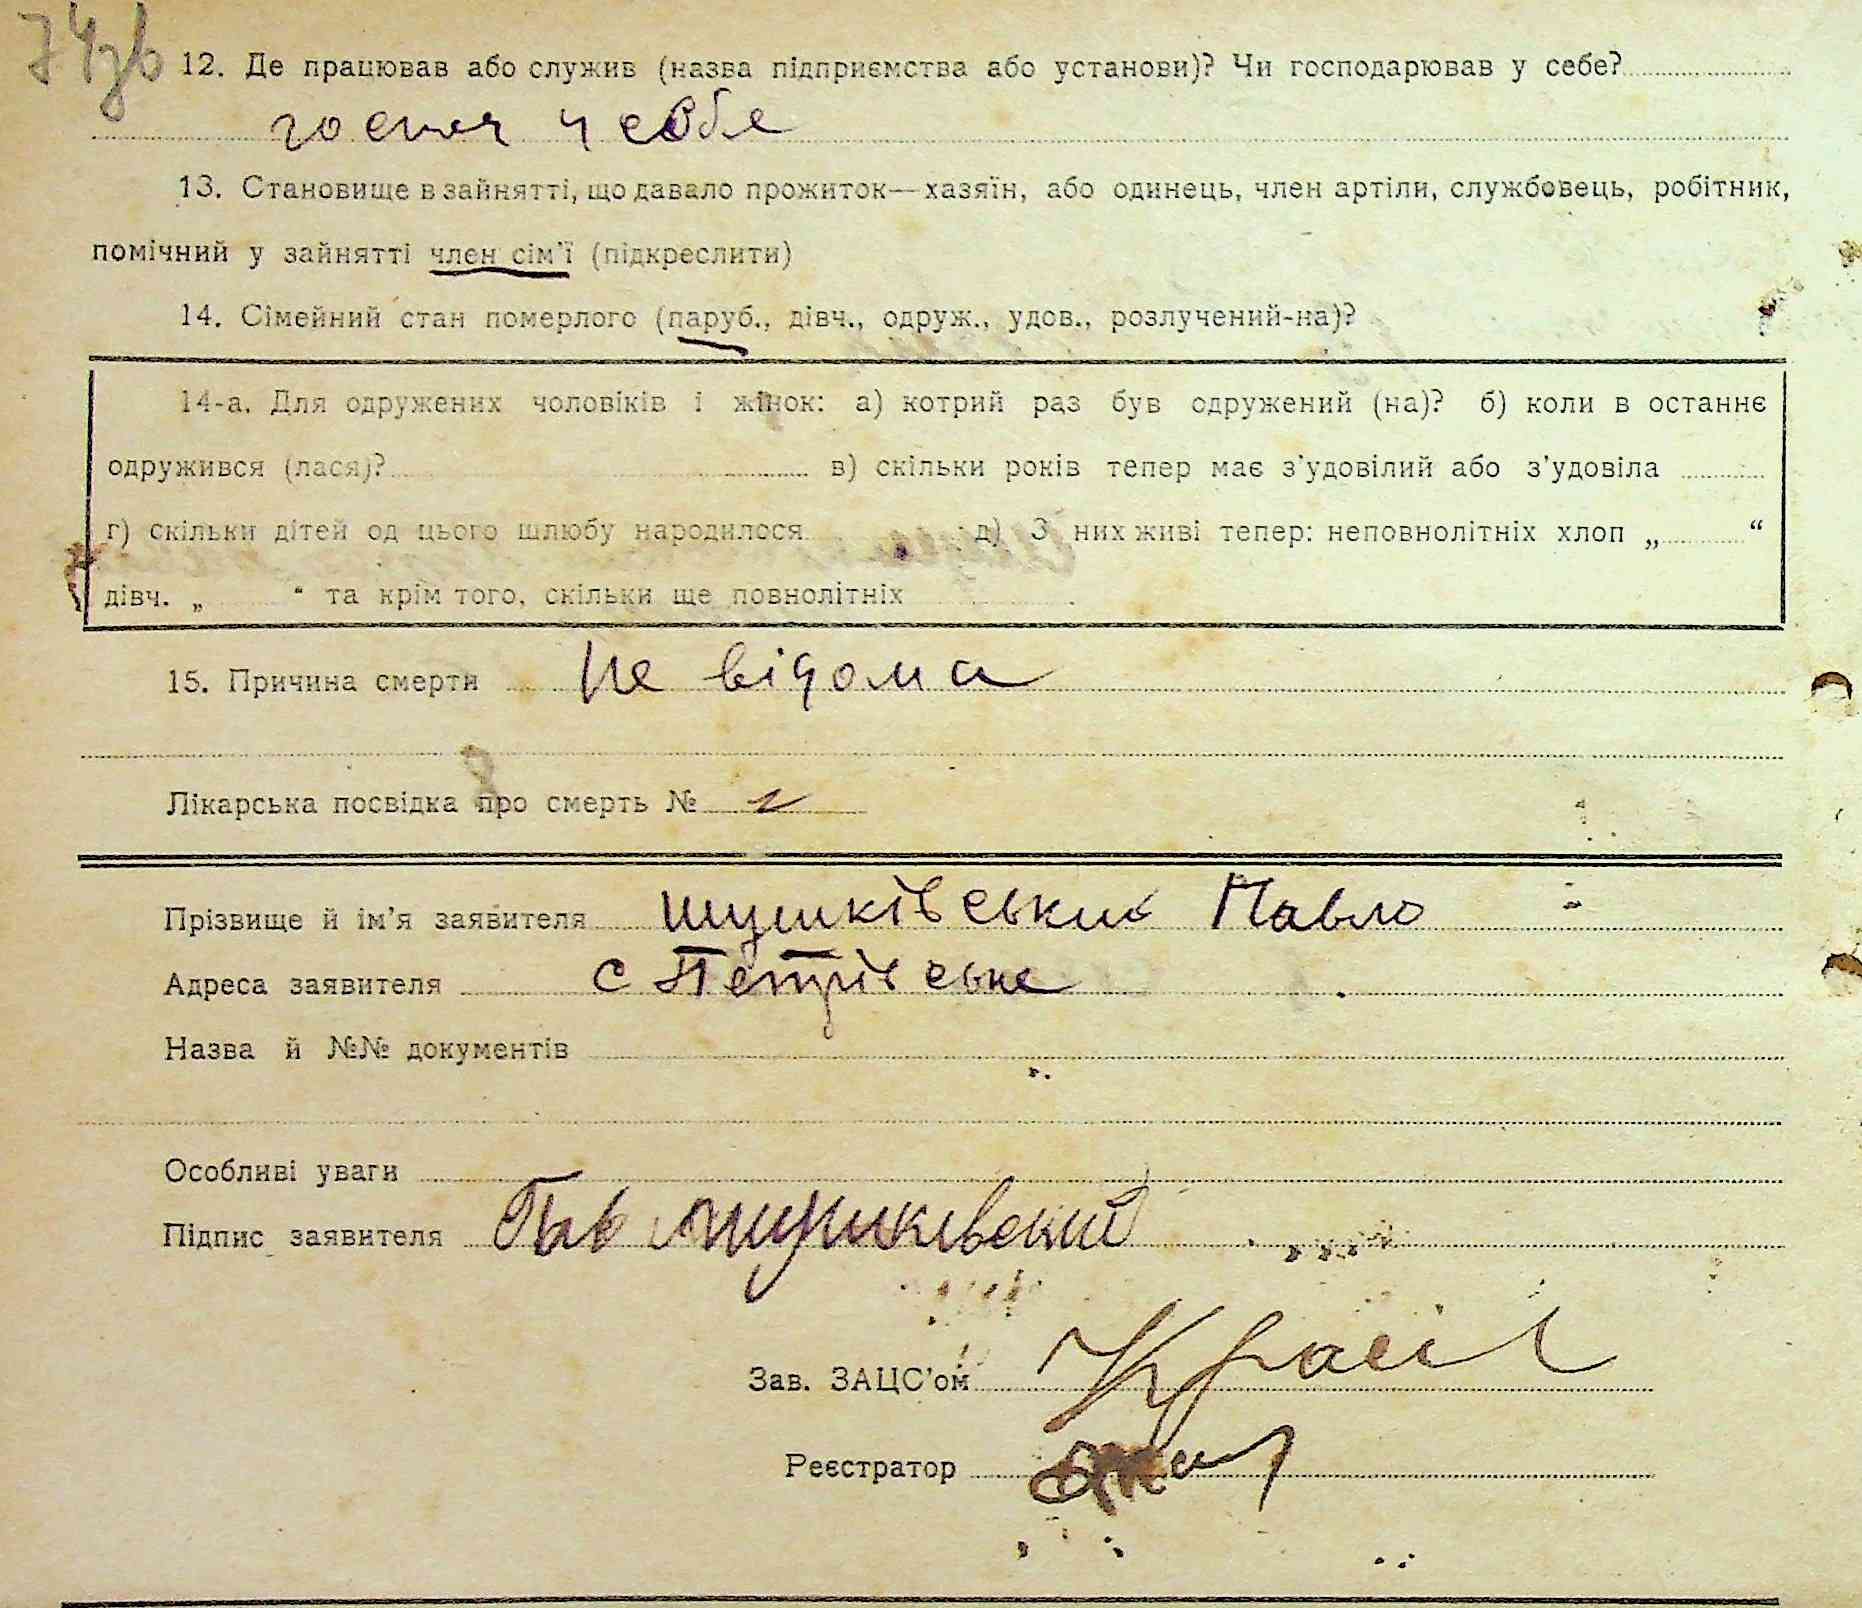 74зв
12. Де працював або служив (назва підприємства або установи)? Чи господарював у себе?
у себе
13. Становище в зайнятті, що давало прожиток—хазяїн, або одинець, член артіли, службовець, робітник,
помічний у зайнятті член сім'ї (підкреслити)
14. Сімейний стан померлого (паруб., дівч., одруж., удов., розлучений-на)?
14-а. Для одружених чоловіків і жінок: а) котрий раз був одружений (на)? б) коли в останнє
одружився (лася)? в) скільки років тепер має з'удовілий або з'удовіла
г) скільки дітей од цього шлюбу народилося д) З них живі тепер: неповнолітніх хлоп „ “
дівч. „ “ та крім того, скільки ще повнолітніх
15. Причина смерти не відома
Лікарська посвідка про смерть №
Прізвище й ім'я заявителя Шушківський Павло
Адреса заявителя с Петрівське
Назва й №№ документів
Особливі уваги
Підпис заявителя
Зав. ЗАЦС'ом
Реєстратор